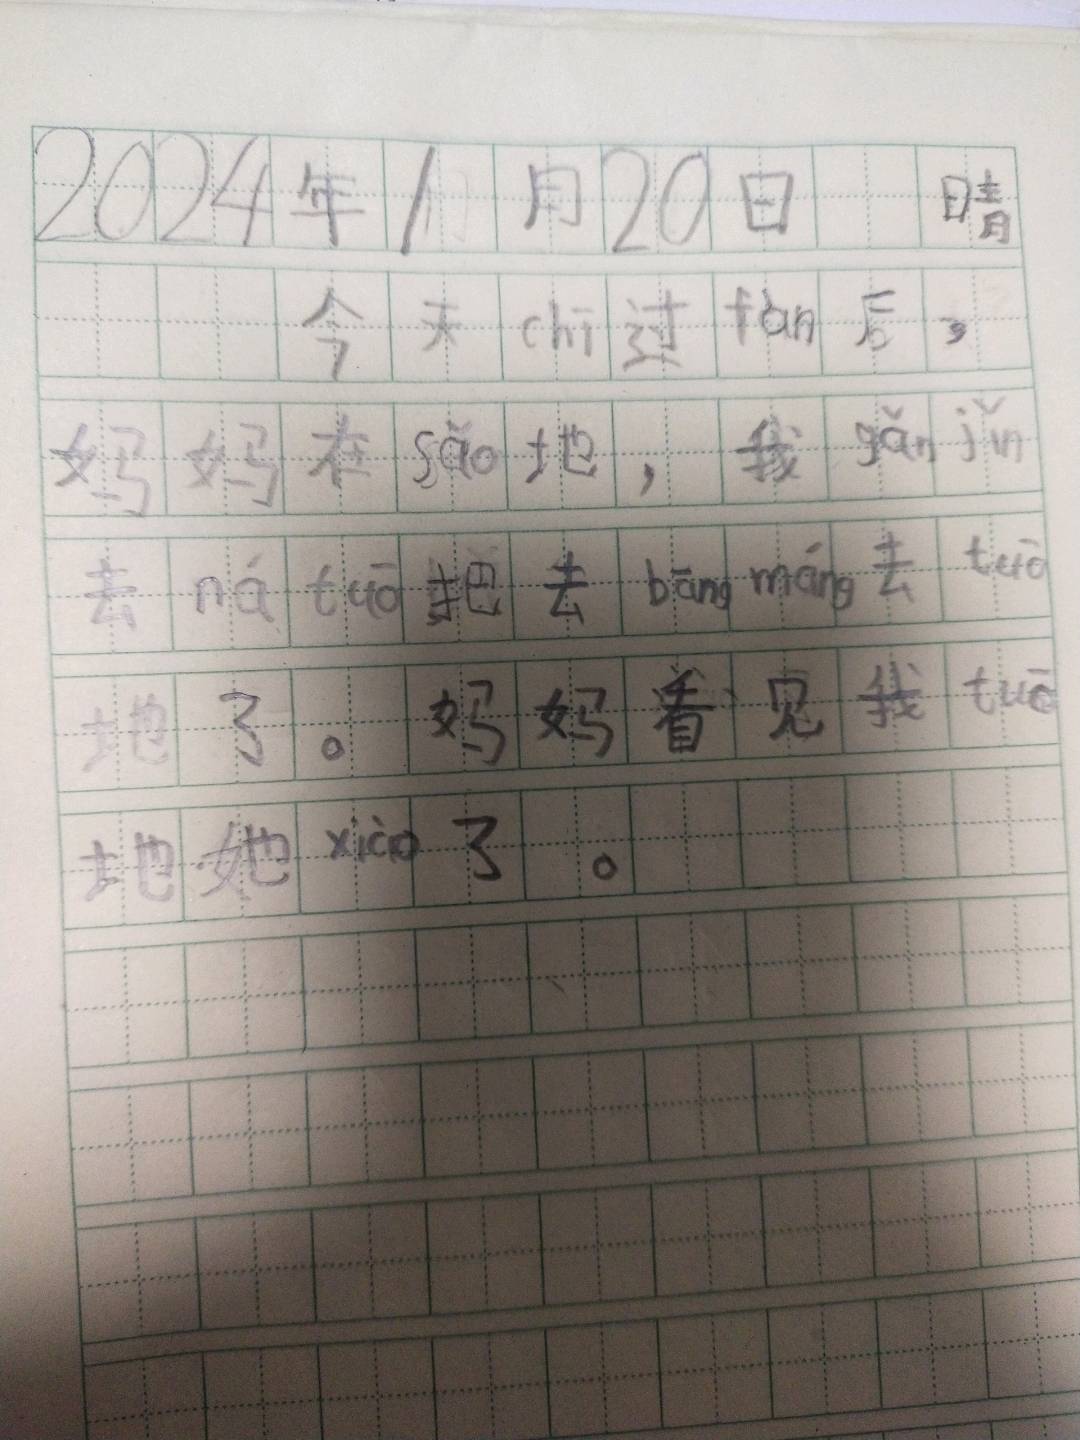 2024年1月20日 晴
今天chī过fàn后，
妈妈在sǎo地，我gǎn jǐn
去ná tuō把去bāng máng去tuō
地了。妈妈看见我tuō
地她xiào了。